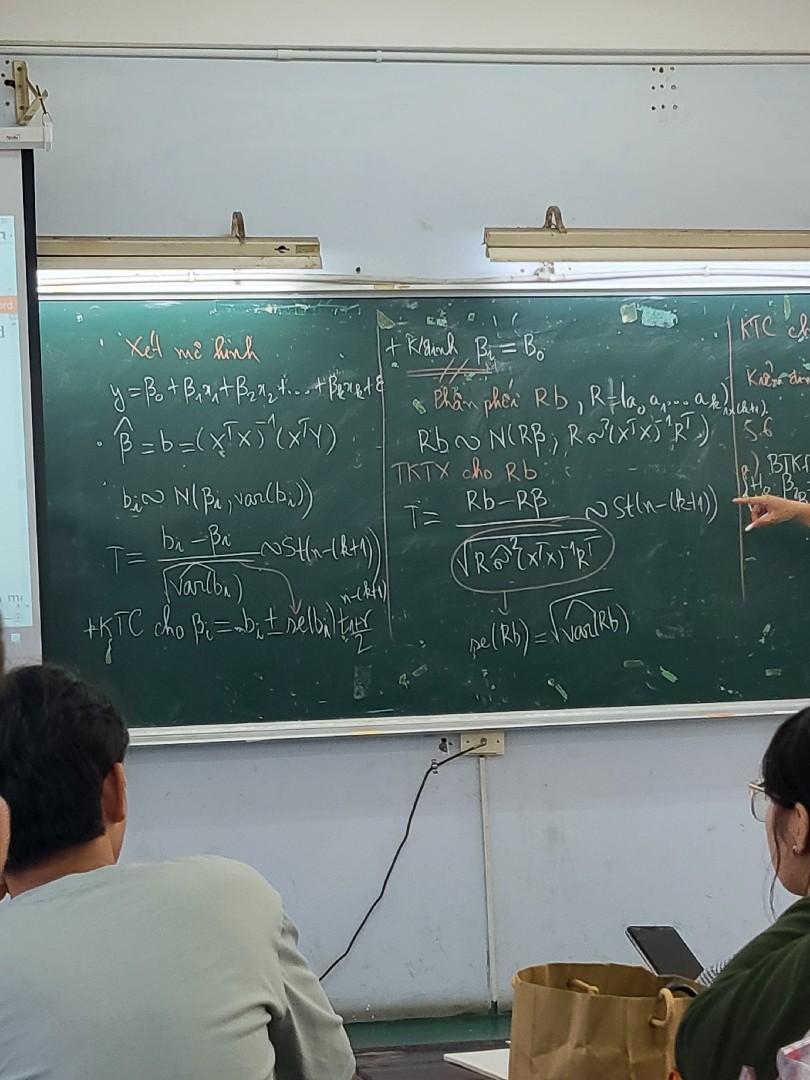 Xét mô hình
y = β₀ + β₁x₁ + β₂x₂ + ... + βₖxₖ + ε
β̂ = b = (XᵀX)⁻¹(XᵀY)
bᵢ ~ N(βᵢ, var(bᵢ))
T = (bᵢ - βᵢ) / √(v̂ar(bᵢ)) ~ St(n-(k+1))
+ KTC cho βᵢ = bᵢ ± se(bᵢ) t_{(1+γ)/2}^{n-(k+1)}
+ K/định βᵢ = β₀
Phân phối Rb, R = (a₀ a₁ ... aₖ)₁ₓ₍ₖ₊₁₎.
Rb ~ N(Rβ; Rσ²(XᵀX)⁻¹Rᵀ)
TKTX cho Rb
T = (Rb - Rβ) / √(Rσ̂²(XᵀX)⁻¹Rᵀ) ~ St(n-(k+1))
se(Rb) = √(v̂ar(Rb))
KTC
5.6
a)